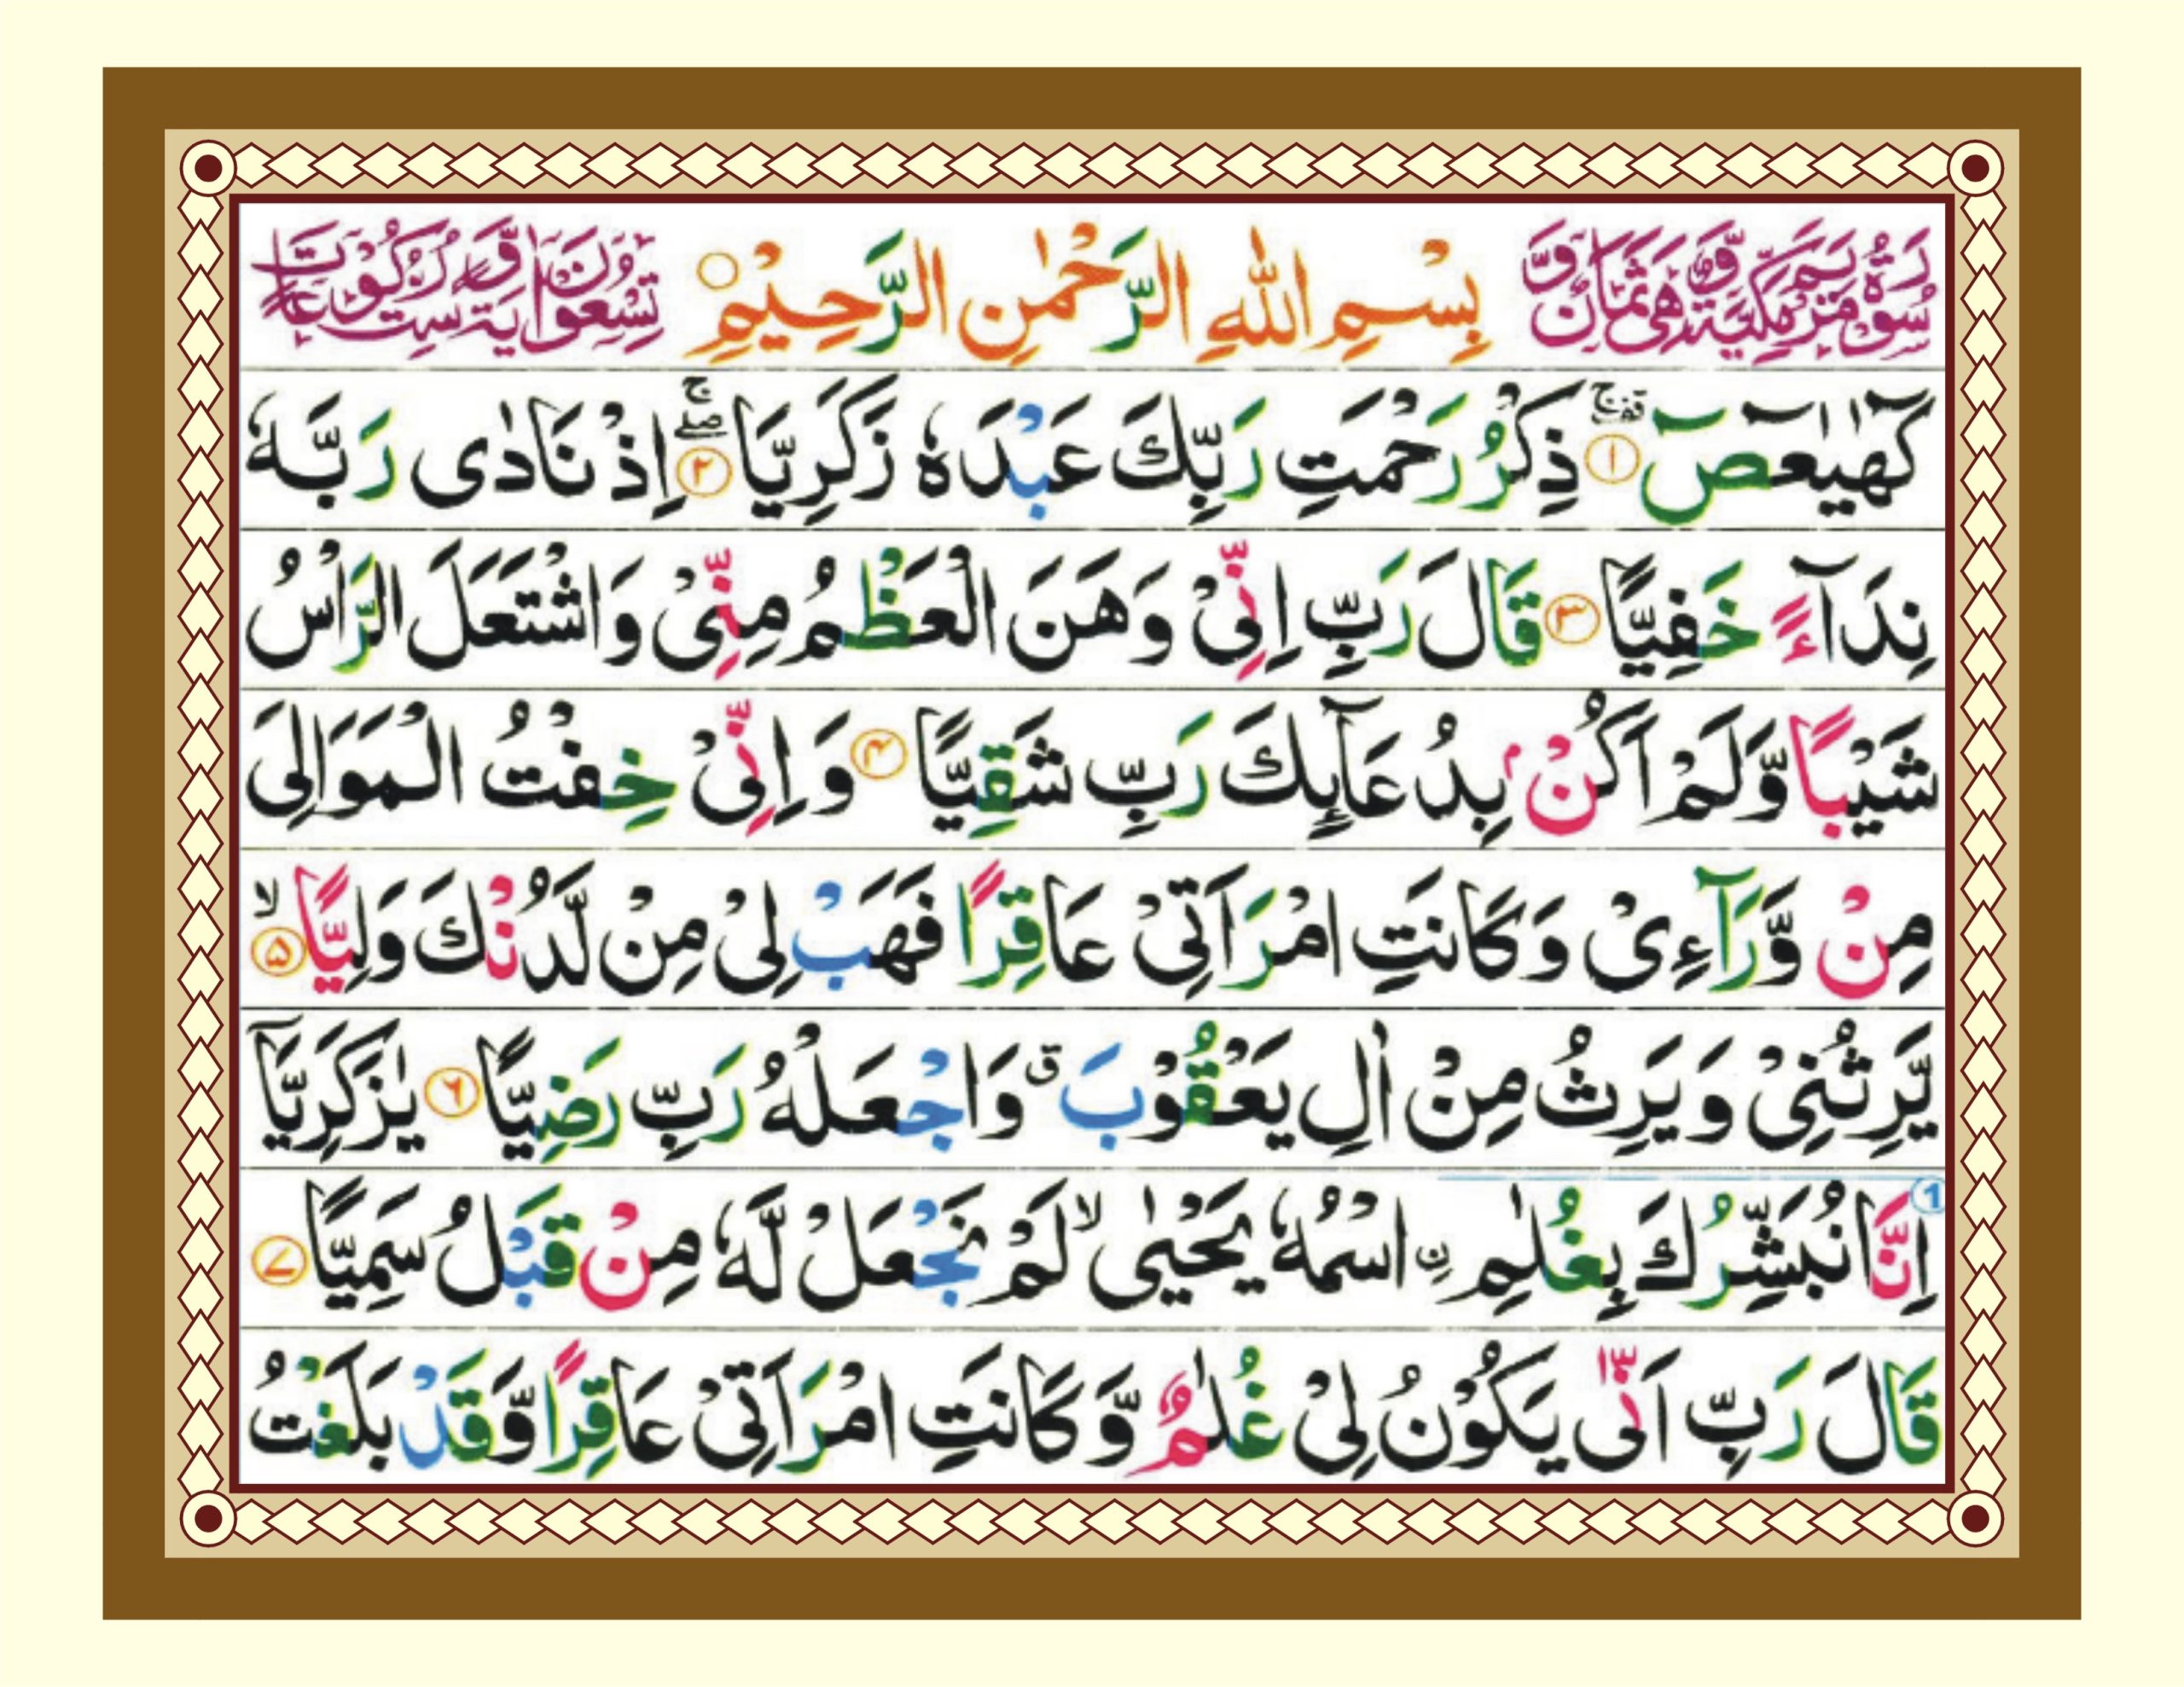 سُوْرَةُ مَرْيَمَ مَكِّيَّةٌ وَّهِيَ ثَمَانٌ وَّ بِسْمِ اللهِ الرَّحْمٰنِ الرَّحِيْمِ تِسْعُوْنَ اٰيَةً وَّسِتُّ رُكُوْعَاتٍ
كٓهٰيٰعٓصٓ ۚ قف ۱ ذِكْرُ رَحْمَتِ رَبِّكَ عَبْدَهٗ زَكَرِيَّا ۖۚ ۲ اِذْ نَادٰى رَبَّهٗ
نِدَآءً خَفِيًّا ۳ قَالَ رَبِّ اِنِّىْ وَهَنَ الْعَظْمُ مِنِّىْ وَاشْتَعَلَ الرَّاْسُ
شَيْبًا وَّلَمْ اَكُنْۢ بِدُعَآىِٕكَ رَبِّ شَقِيًّا ۴ وَ اِنِّىْ خِفْتُ الْمَوَالِىَ
مِنْ وَّرَآءِىْ وَكَانَتِ امْرَاَتِىْ عَاقِرًا فَهَبْ لِىْ مِنْ لَّدُنْكَ وَلِيًّا ۙ ۵
يَّرِثُنِىْ وَيَرِثُ مِنْ اٰلِ يَعْقُوْبَ ق وَاجْعَلْهُ رَبِّ رَضِيًّا ۶ يٰزَكَرِيَّآ
1 اِنَّا نُبَشِّرُكَ بِغُلٰمِ ن ِاسْمُهٗ يَحْيٰى ۙ لَمْ نَجْعَلْ لَّهٗ مِنْ قَبْلُ سَمِيًّا ۷
قَالَ رَبِّ اَنّٰى يَكُوْنُ لِىْ غُلٰمٌ وَّكَانَتِ امْرَاَتِىْ عَاقِرًا وَّقَدْ بَلَغْتُ